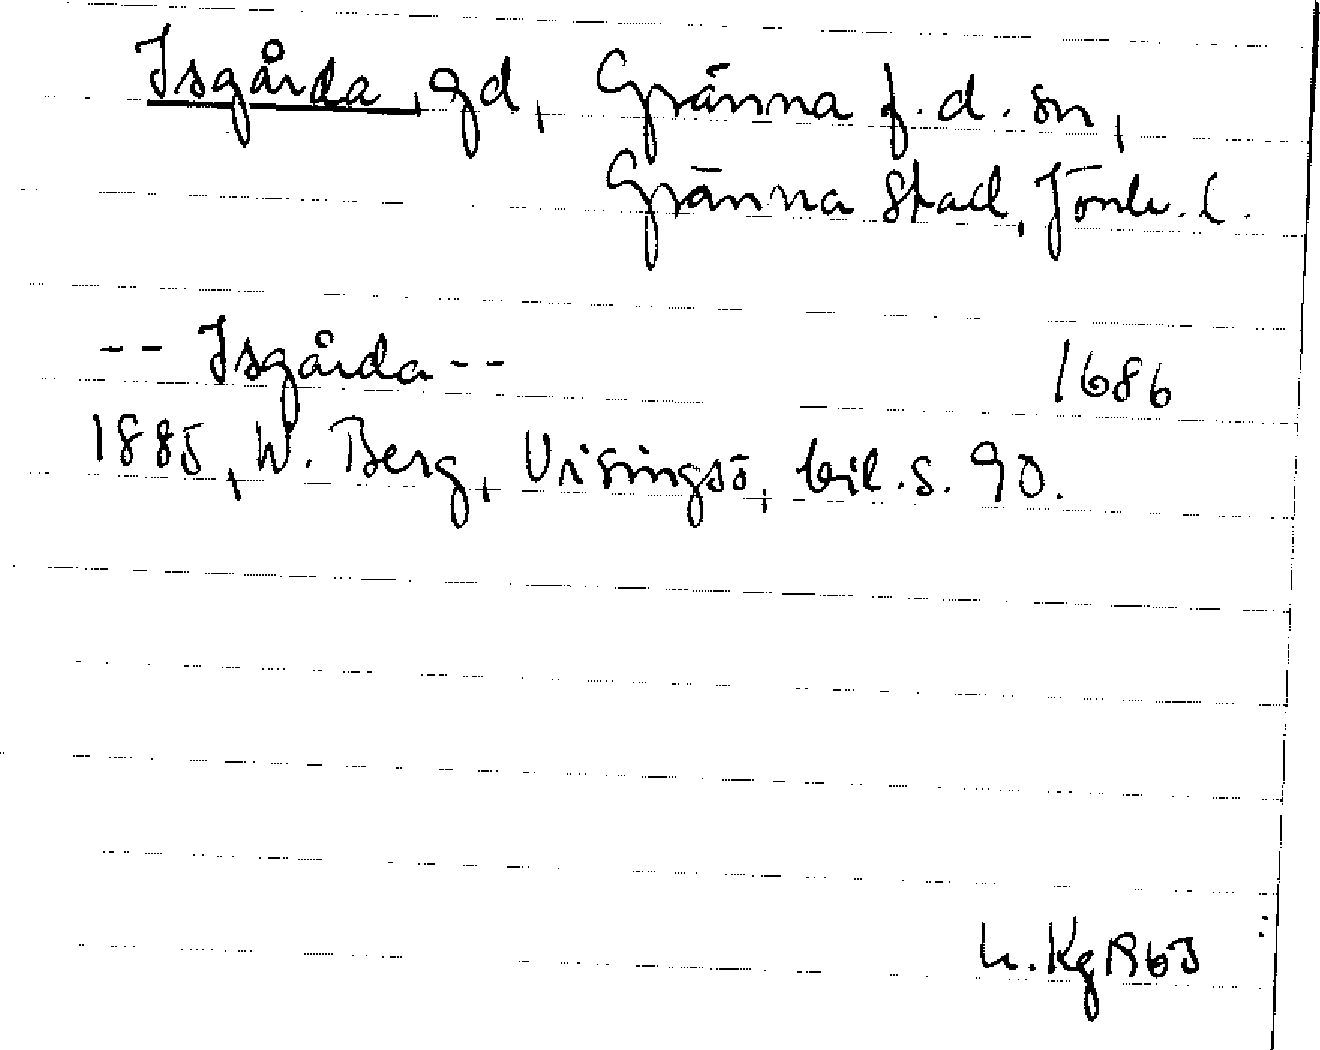 Isgårda, gd, Gränna f.d. sn,
Gränna stad, Jönk. l.
-- Isgårda -- 1686
1885, W. Berg, Visingsö, bil. s. 90.